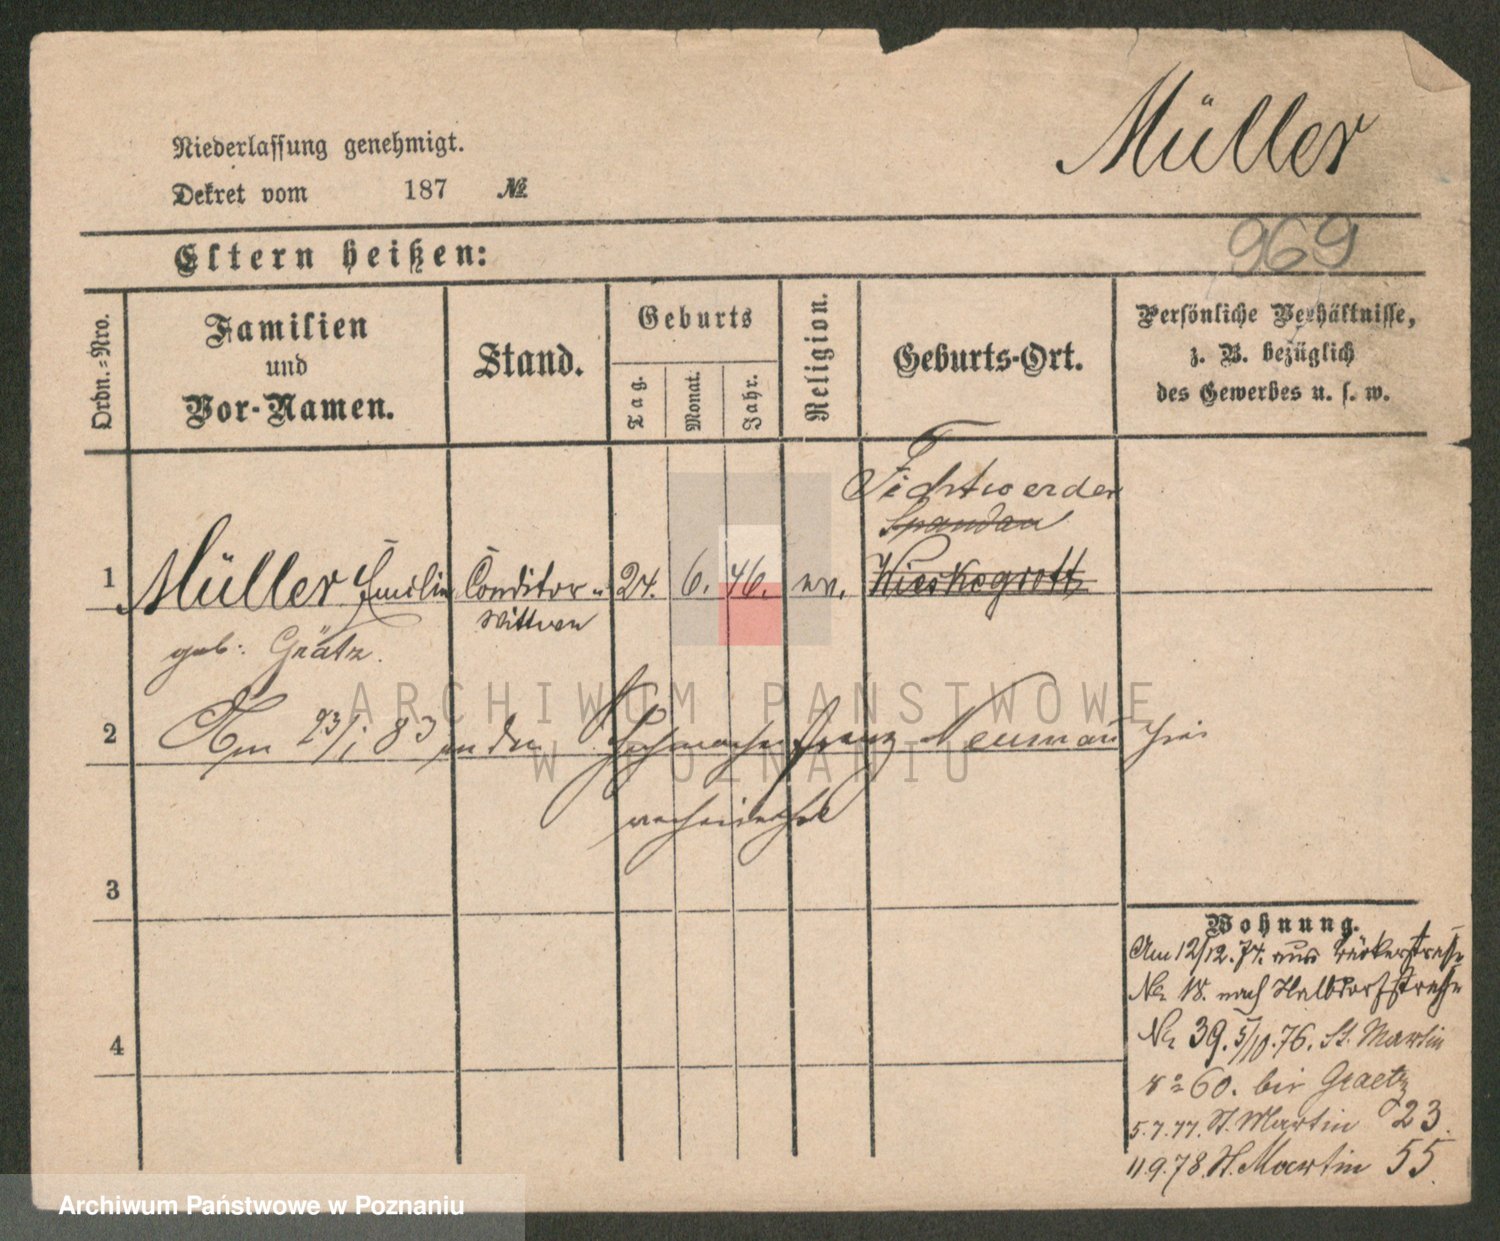 Müller
Niederlassung genehmigt.
Dekret vom 187 №
969
Eltern heißen:
Ordn.-Nro.
Familien
und
Vor-Namen.
Stand.
Geburts
Tag.
Monat.
Jahr.
Religion.
Geburts-Ort.
Persönliche Verhältnisse,
z. B. bezüglich
des Gewerbes u. s. w.
Fichtwerder
Spandau
1 Müller Emilie Conditor- 24. 6. 46. ev. Wieskegrott
Wittwe
geb: Grätz.
2 Am 23/1 83 an den Franz Neumann hier
verheirathet
3
4
Wohnung.
Am 12/12. 74. aus Bäckerstraße
No 18. nach Halbdorfstraße
No 39. 5/10. 76. St. Martin
60. bei Graetz
5.7.77. St. Martin 23.
11.9.78. St. Martin 55.
ARCHIWUM PAŃSTWOWE
W POZNANIU
Archiwum Państwowe w Poznaniu